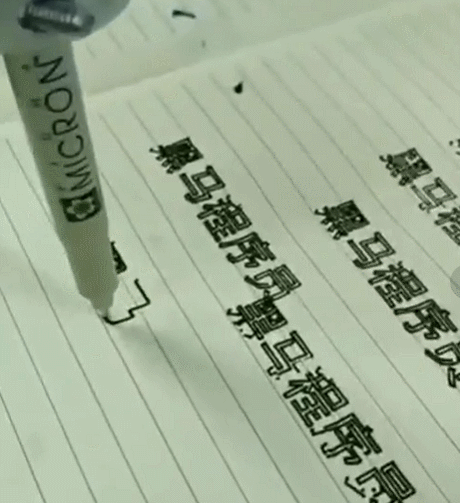 MICRON
黑马程序员
黑马程序员
黑马程序员
黑马程